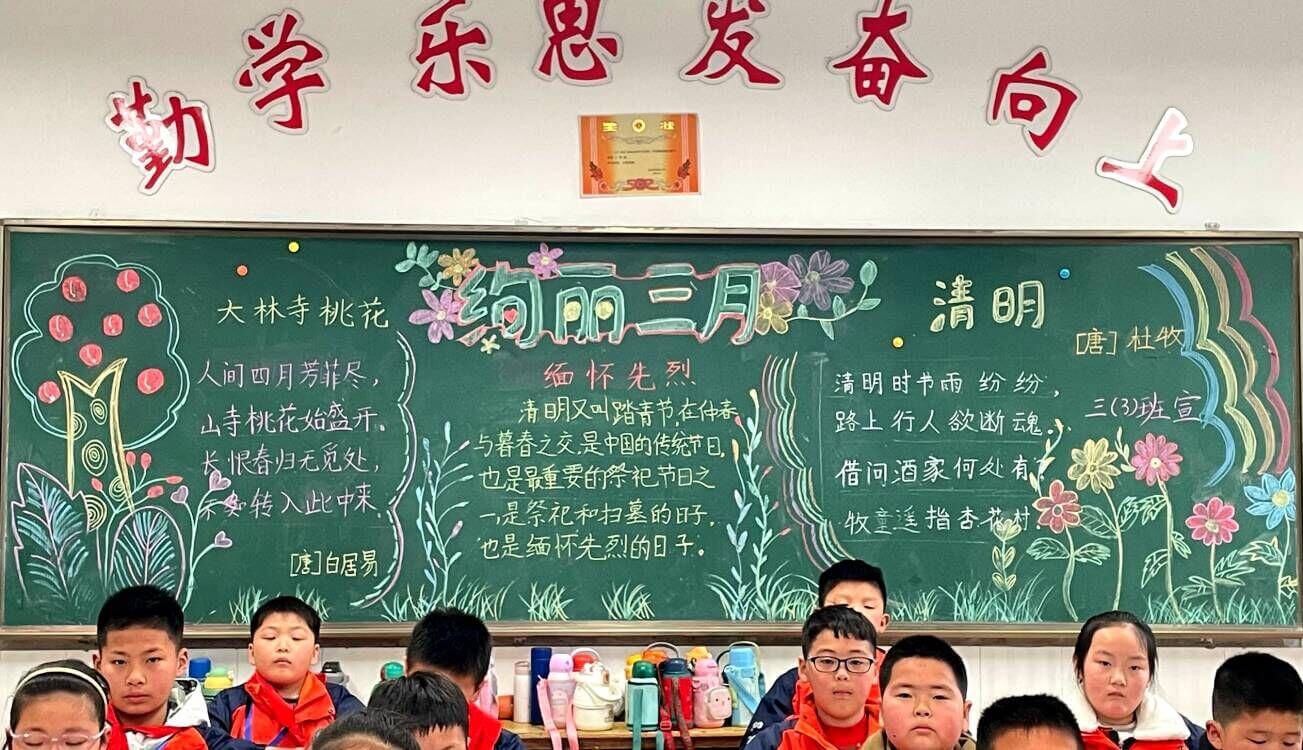 勤学乐思发奋向上
奖状
绚丽三月
大林寺桃花
人间四月芳菲尽，
山寺桃花始盛开。
长恨春归无觅处，
不知转入此中来。
[唐]白居易
缅怀先烈
清明又叫踏青节，在仲春
与暮春之交，是中国的传统节日，
也是最重要的祭祀节日之
一，是祭祀和扫墓的日子，
也是缅怀先烈的日子。
清明
[唐] 杜牧
清明时节雨纷纷，
路上行人欲断魂。
借问酒家何处有？
牧童遥指杏花村
三(3)班宣